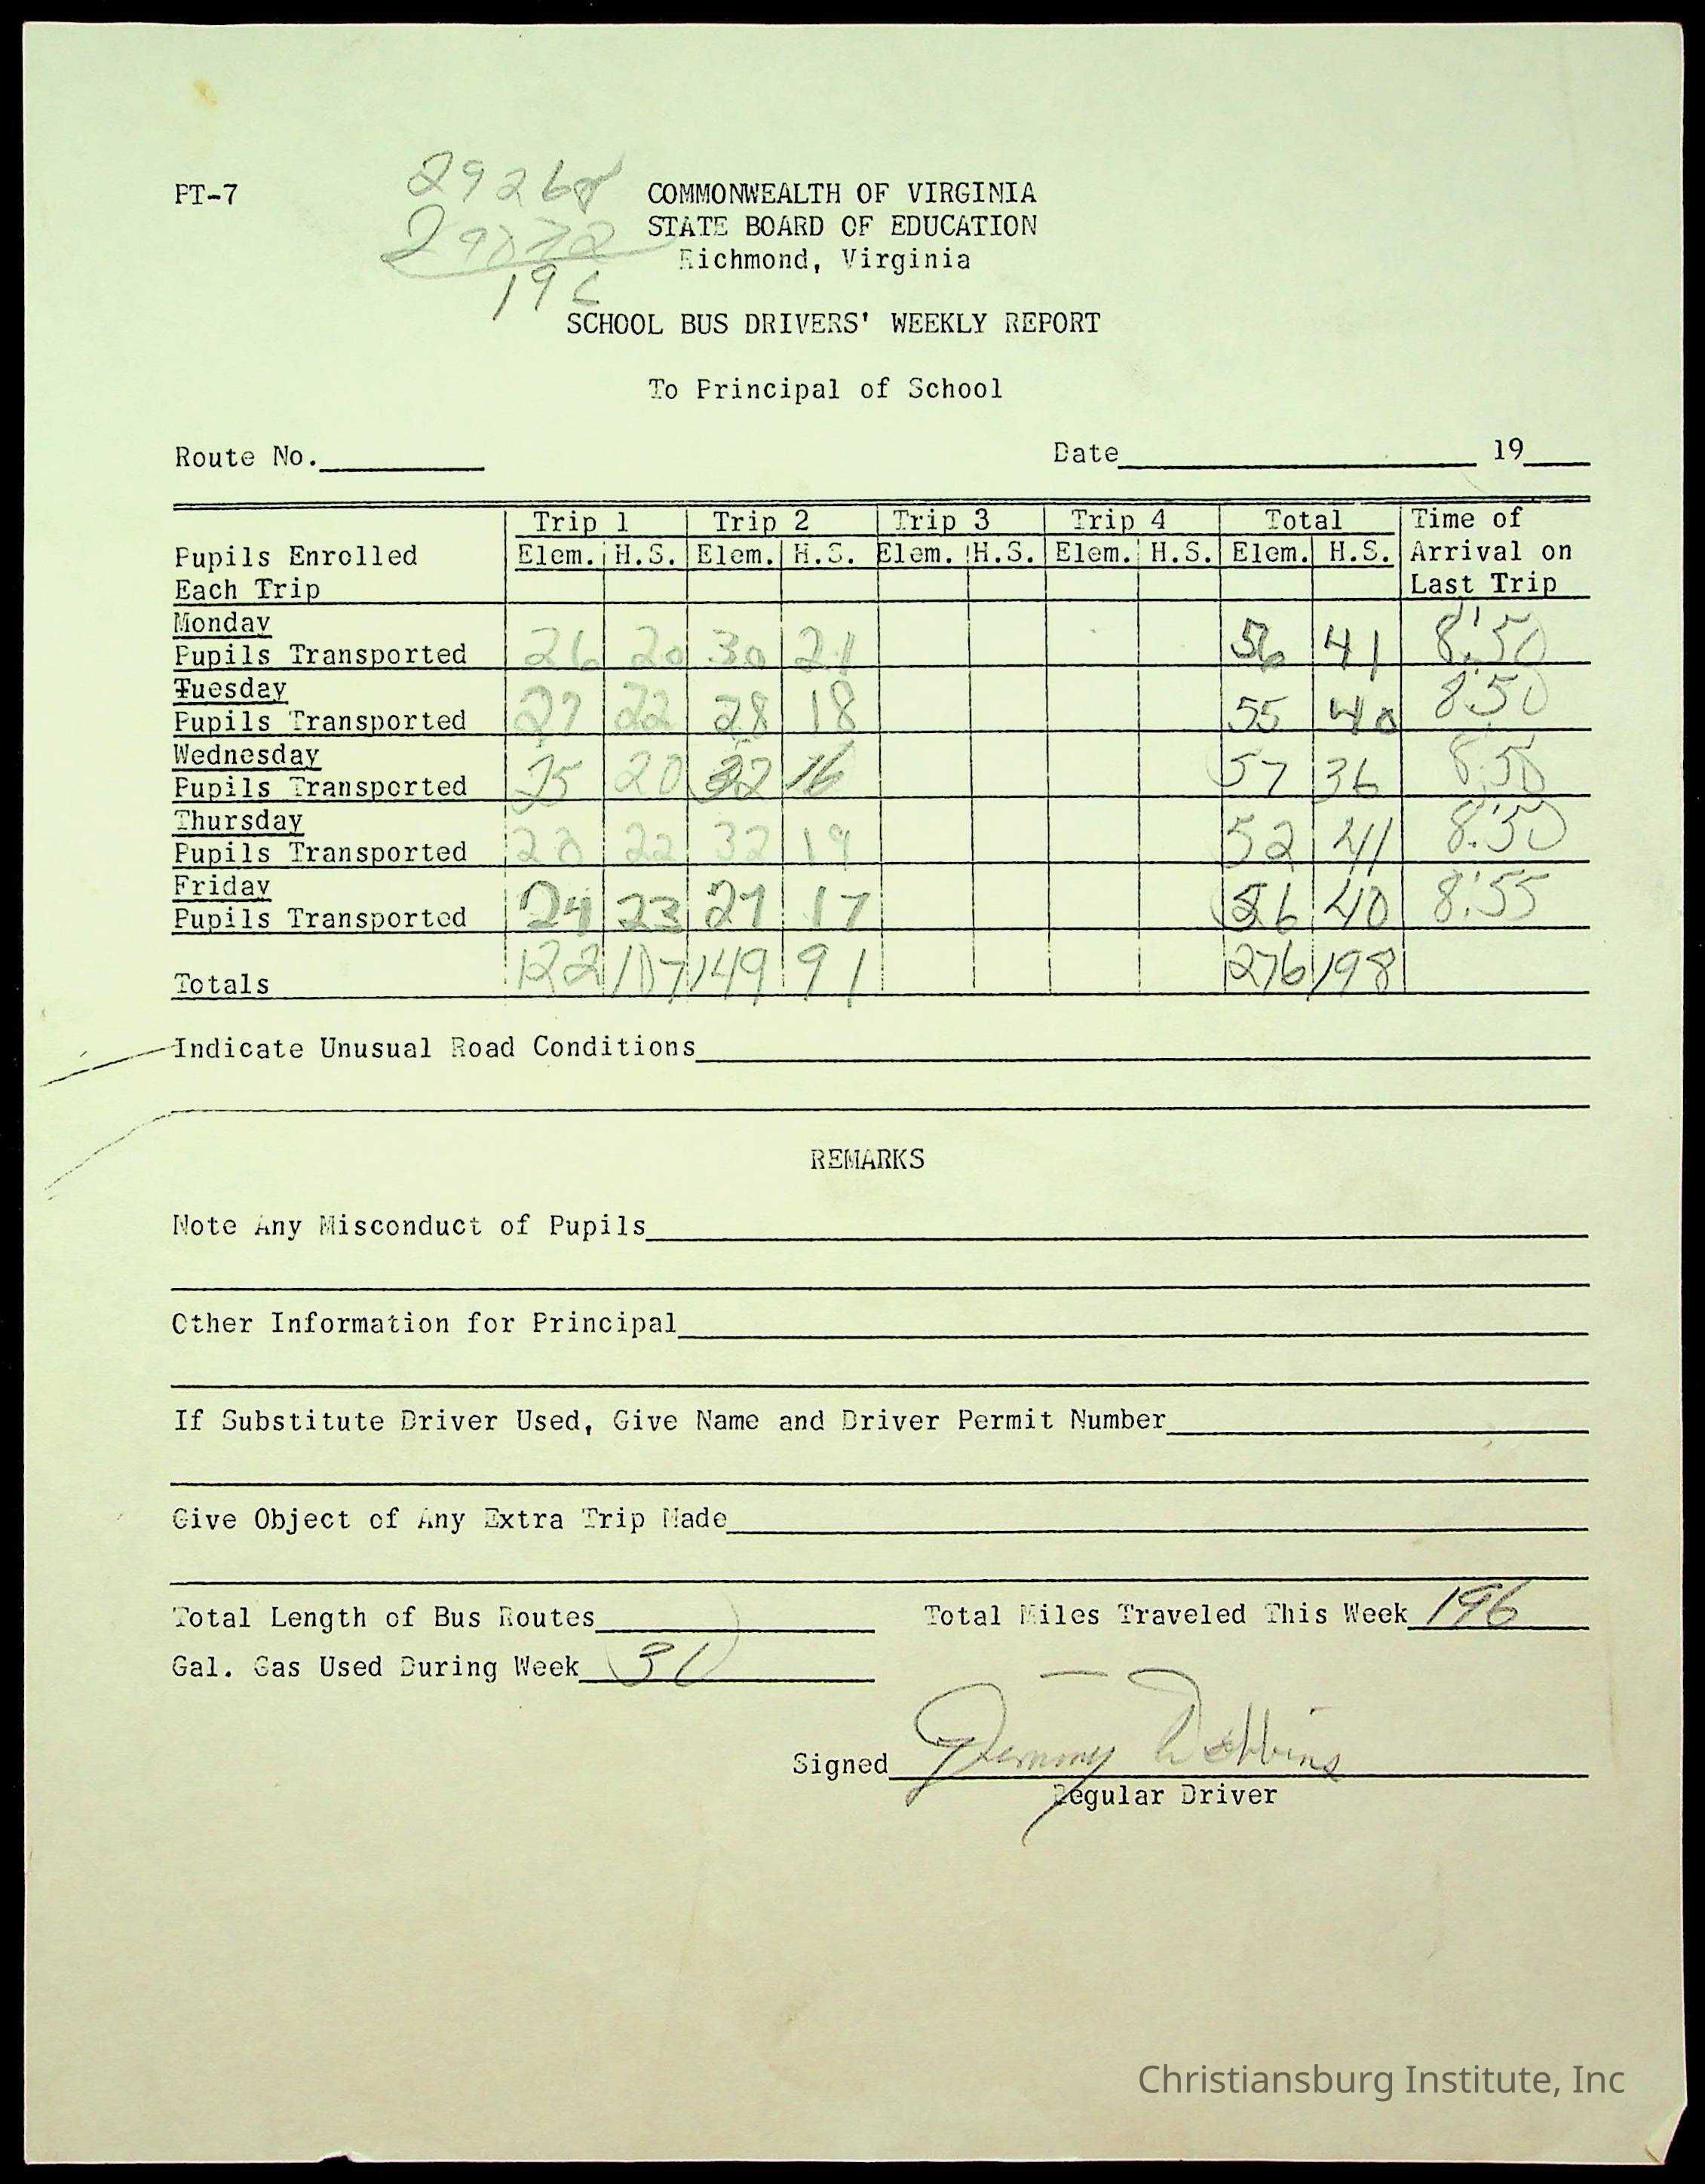 PT-7
29268
29072
196
COMMONWEALTH OF VIRGINIA
STATE BOARD OF EDUCATION
Richmond, Virginia
SCHOOL BUS DRIVERS' WEEKLY REPORT
To Principal of School
Route No. Date 19
Trip 1 Trip 2 Trip 3 Trip 4 Total Time of
Pupils Enrolled Elem. H.S. Elem. H.S. Elem. H.S. Elem. H.S. Elem. H.S. Arrival on
Each Trip Last Trip
Monday
Pupils Transported 26 20 30 21 56 41 8:50
Tuesday
Pupils Transported 27 22 28 18 55 40 8:50
Wednesday
Pupils Transported 25 20 32 16 57 36 8:50
Thursday
Pupils Transported 20 22 32 19 52 41 8:50
Friday
Pupils Transported 24 23 27 17 56 40 8:55
Totals 122 107 149 91 276 198
Indicate Unusual Road Conditions
REMARKS
Note Any Misconduct of Pupils
Other Information for Principal
If Substitute Driver Used, Give Name and Driver Permit Number
Give Object of Any Extra Trip Made
Total Length of Bus Routes Total Miles Traveled This Week 196
Gal. Gas Used During Week 31
Signed
Regular Driver
Christiansburg Institute, Inc